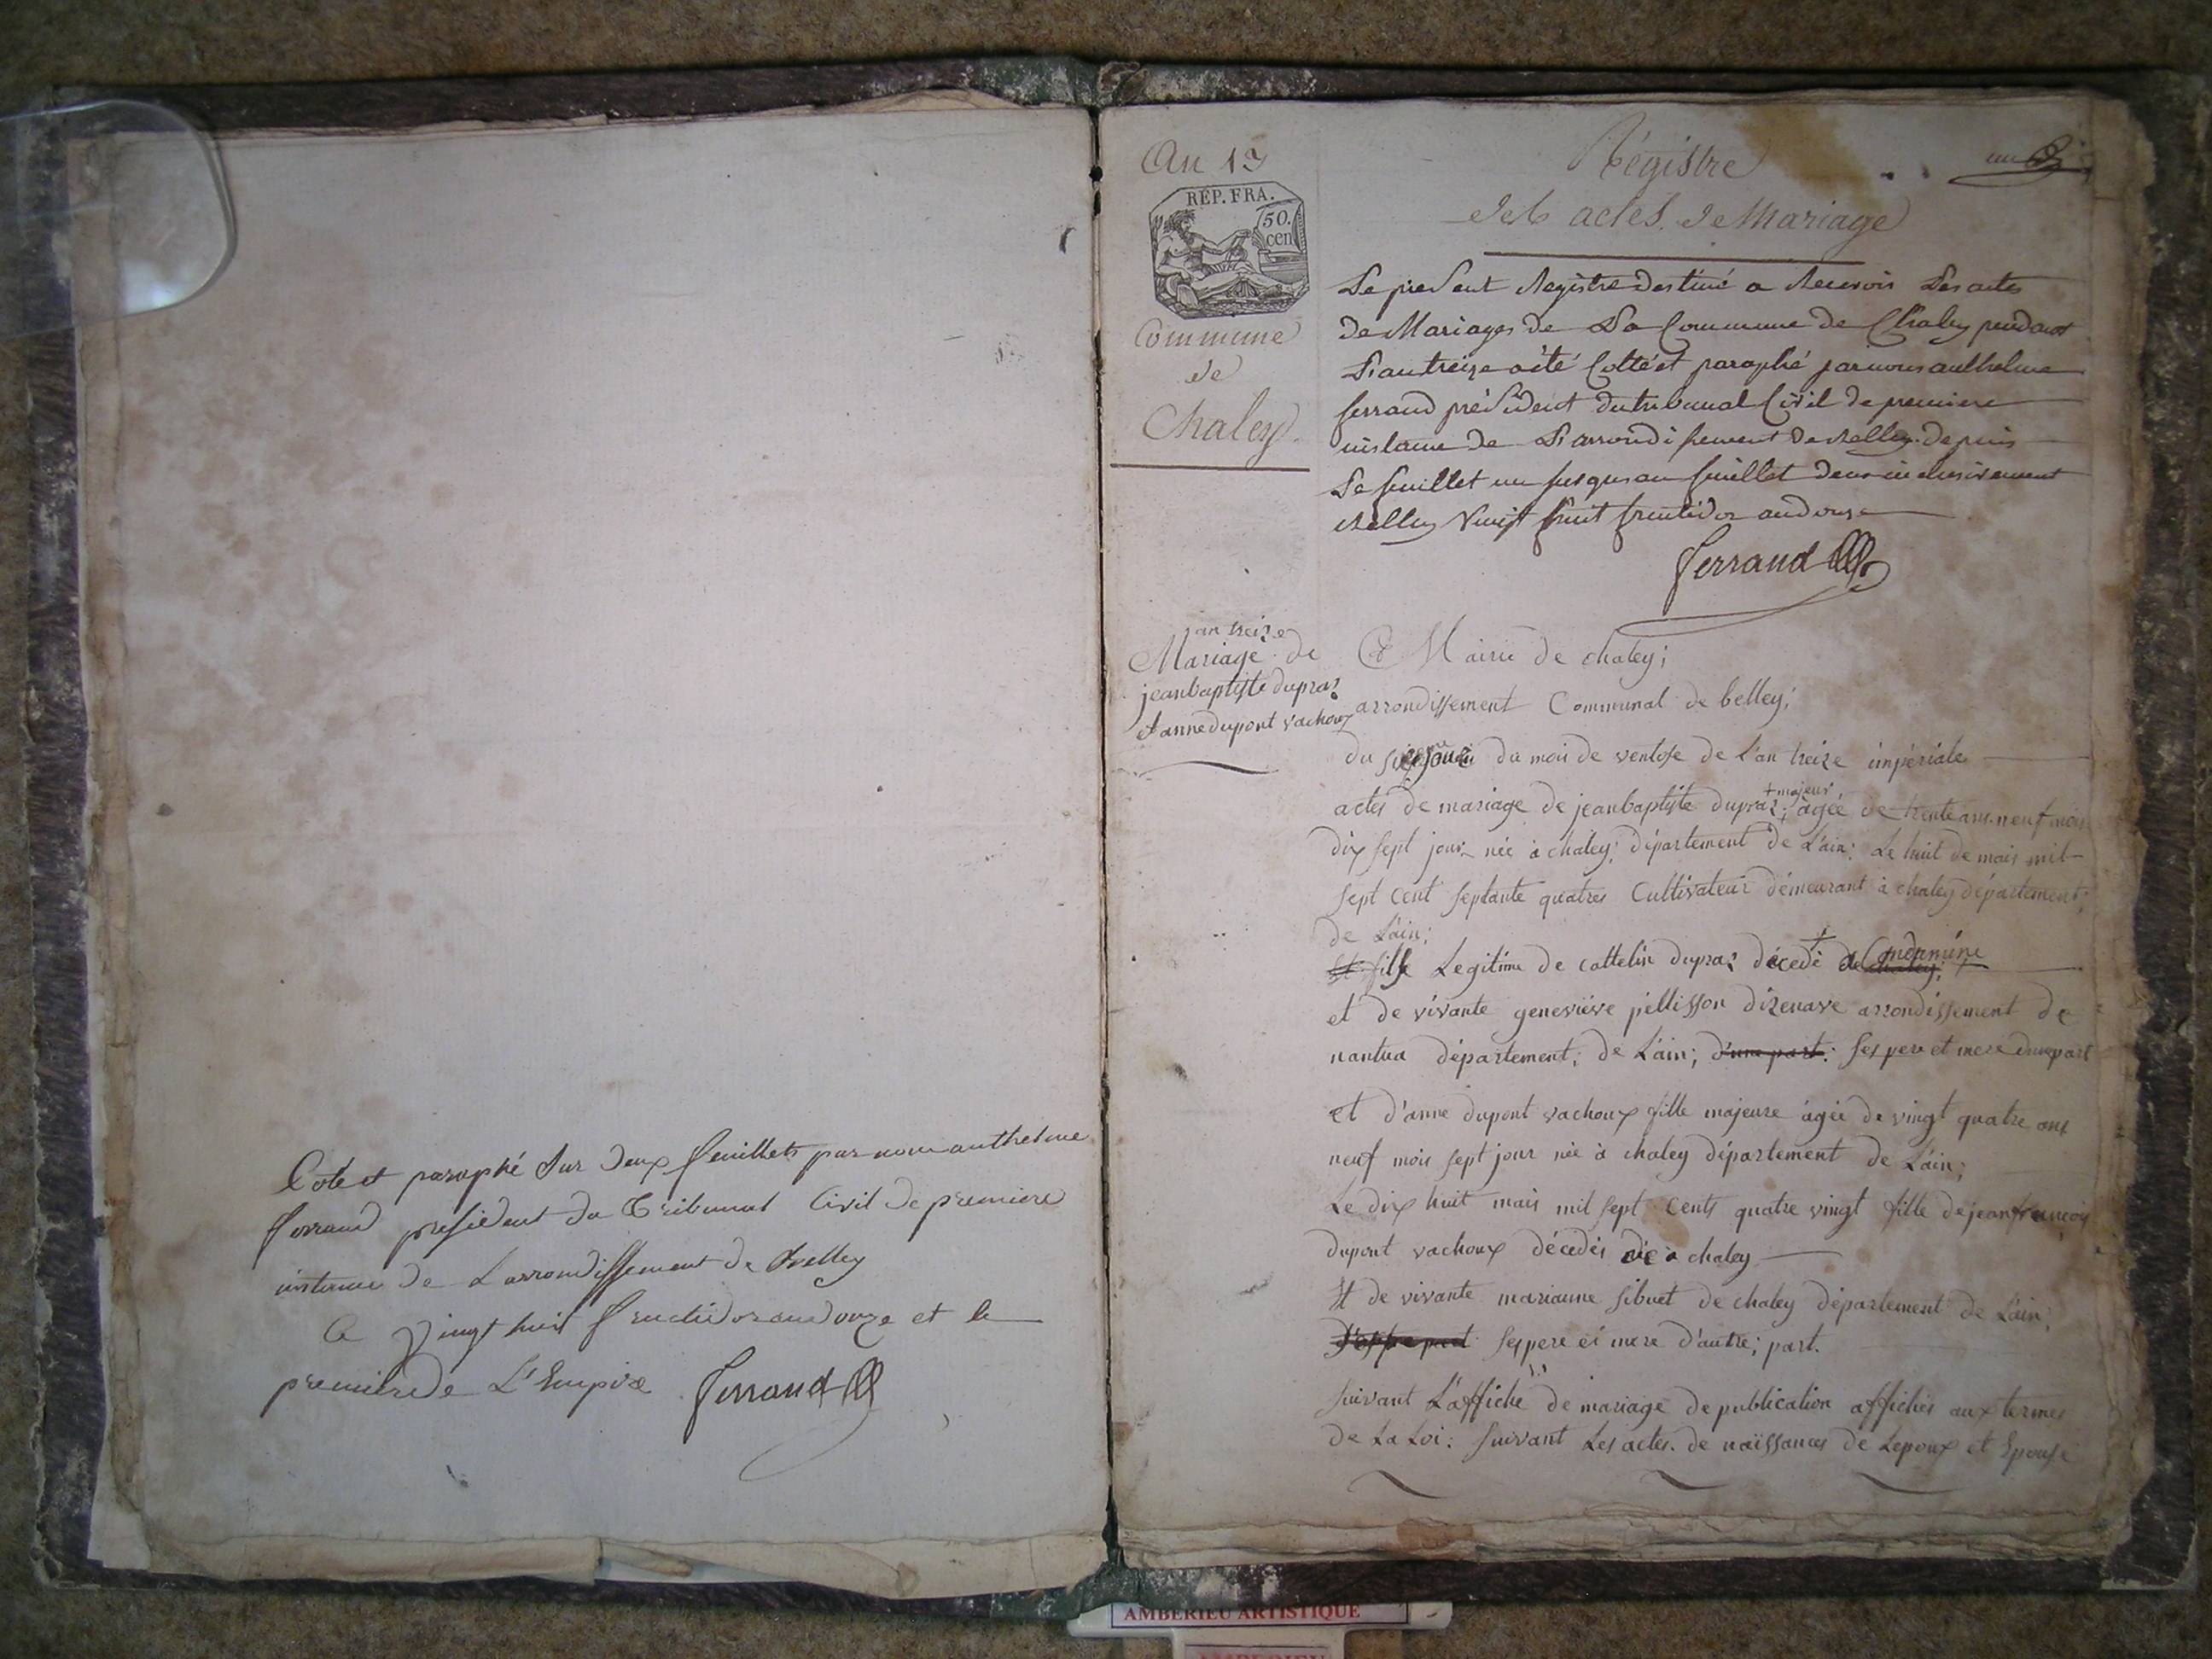 Coté et paraphé Sur deux feuillets par nous anthelme
ferrand president du Tribunal Civil de premiere
instance de Larrondissement de Belley
Ce Vingt huit fructidor an douze et le
premier de L'Empire ferrand
An 13
RÉP. FRA.
50.
cen
Commune
de
Chaley
un
Régistre
des actes de Mariage
Le present Registre destiné a Recevoir Les actes
de Mariages de La Commune de Chaley pendant
L'an treize a été Cotté et paraphé par nous anthelme
ferrand président du tribunal Civil de premiere
instance de L'arrondissement de Belley depuis
Le feuillet un jusqu'au feuillet deux inclusivement
Belley Vingt huit fructidor an douze
ferrand
an treize
Mariage de
jean baptiste dupraz
et anne dupont vachoux
Mairie de chaley;
arrondissement Communal de belley;
du mois de ventose de l'an treize impériale
actes de mariage de jean baptiste dupraz; + majeur agée de trente ans neuf mois
dix sept jour née à chaley; département de L'ain; Le huit de mais mil
sept cent septante quatres Cultivateur démeurant à chaley département;
de L'ain;
fils Legitime de cattelin dupraz décedé
et de vivante geneviéve péllisson dizenave arrondissement de
nantua département; de L'ain; d'une part: ses pere et mere d'une part
et d'anne dupont vachoux fille majeure agée de vingt quatre ans
neuf mois sept jour née à chaley département de L'ain;
Le dix huit mais mil sept cents quatre vingt fille de jean francois
dupont vachoux décedés à chaley
Et de vivante marianne sibuet de chaley département de L'ain;
ses pere et mere d'autre; part.
suivant L'affiche de mariage de publication affichés aux termes
de La Loi: suivant Les actes de naissances de Lepoux et Epouse
AMBERIEU ARTISTIQUE
AMBERIEU